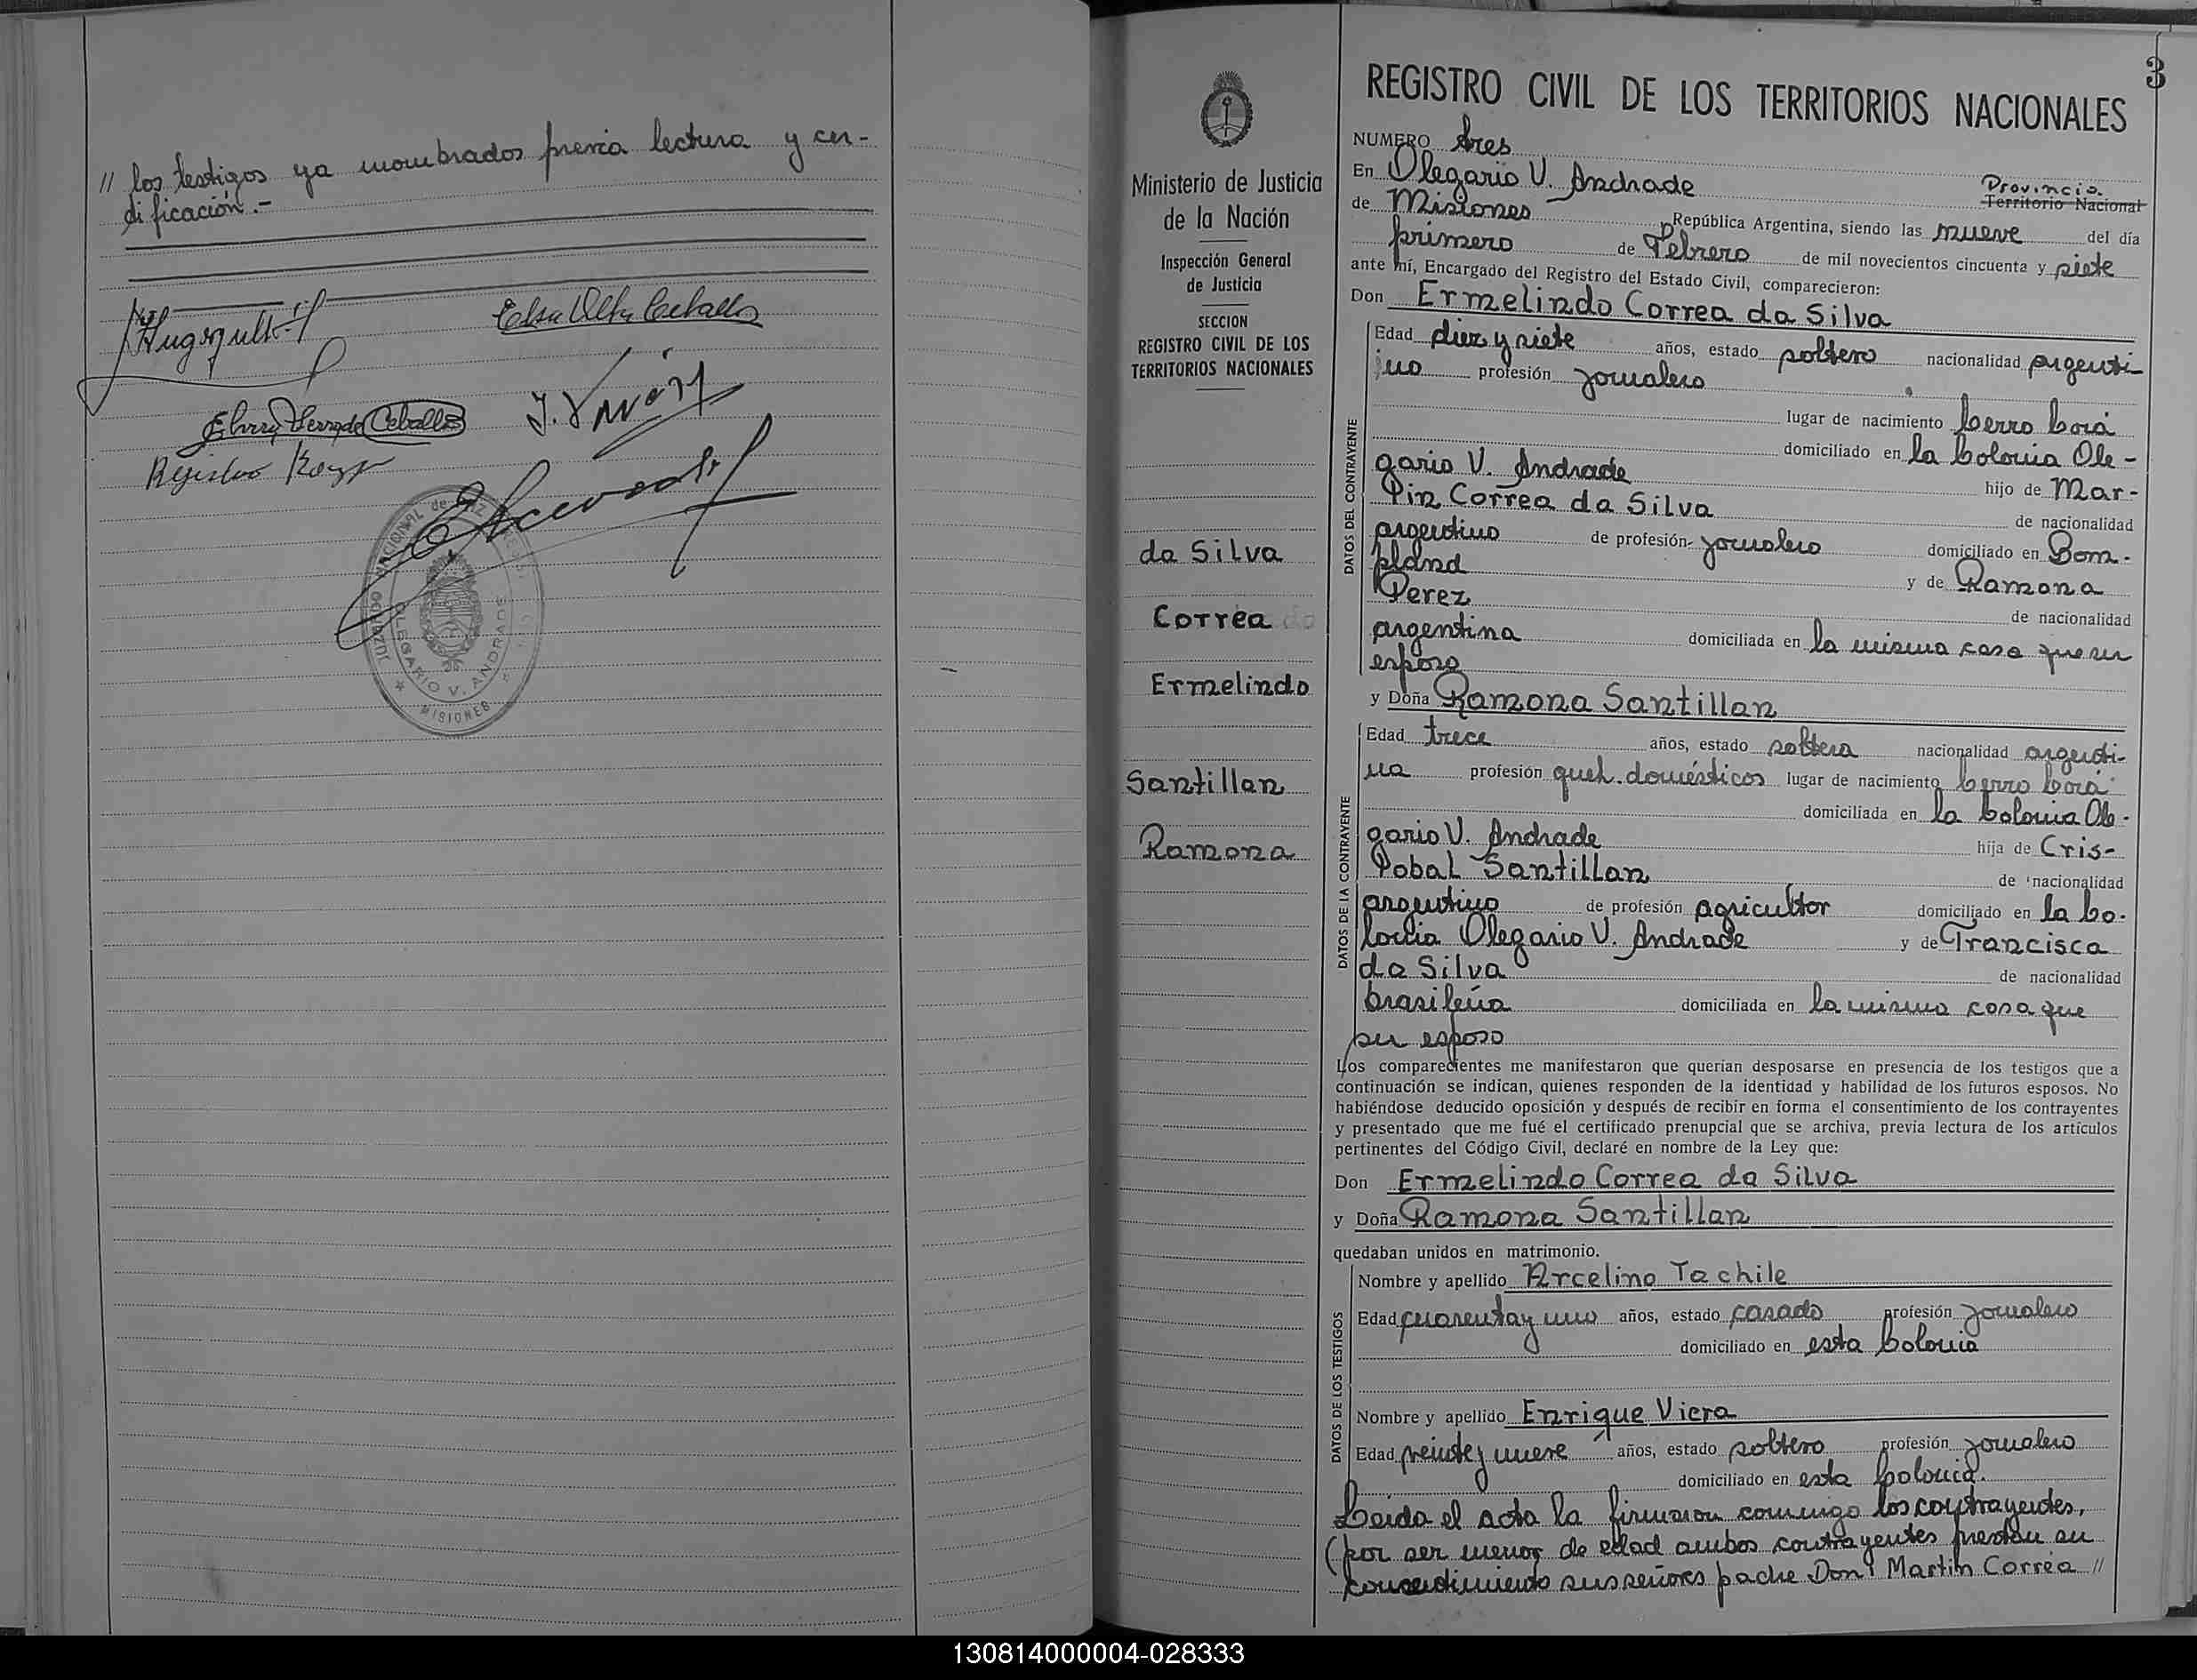 // los testigos ya nombrados previa lectura y cer-
dificación.-
Elsa Ceballos
Ceballos
Registro
OLEGARIO V. ANDRADE
MISIONES
3
REGISTRO CIVIL DE LOS TERRITORIOS NACIONALES
Ministerio de Justicia
de la Nación
Inspección General
de Justicia
SECCION
REGISTRO CIVIL DE LOS
TERRITORIOS NACIONALES
da Silva
Correa
Ermelindo
Santillan
Ramona
NUMERO tres
En Olegario V. Andrade Provincia Territorio Nacional
de Misiones República Argentina, siendo las nueve del día
primero de Febrero de mil novecientos cincuenta y siete
ante mí, Encargado del Registro del Estado Civil, comparecieron:
Don Ermelindo Correa da Silva
DATOS DEL CONTRAYENTE
Edad diez y siete años, estado soltero nacionalidad argenti
no profesión jornalero
lugar de nacimiento Cerro Corá
domiciliado en la Colonia Ole-
gario V. Andrade hijo de Mar-
tin Correa da Silva de nacionalidad
argentino de profesión jornalero domiciliado en Bom-
pland y de Ramona
Perez de nacionalidad
argentina domiciliada en la misma casa que su
esposo
y Doña Ramona Santillan
DATOS DE LA CONTRAYENTE
Edad trece años, estado soltera nacionalidad argenti-
na profesión queh. domésticos lugar de nacimiento Cerro Corá
domiciliada en la Colonia Ole-
gario V. Andrade hija de Cris-
tobal Santillan de nacionalidad
argentino de profesión agricultor domiciliado en la Co-
lonia Olegario V. Andrade y de Francisca
da Silva de nacionalidad
brasileña domiciliada en la misma casa que
su esposo
Los comparecientes me manifestaron que querían desposarse en presencia de los testigos que a
continuación se indican, quienes responden de la identidad y habilidad de los futuros esposos. No
habiéndose deducido oposición y después de recibir en forma el consentimiento de los contrayentes
y presentado que me fué el certificado prenupcial que se archiva, previa lectura de los artículos
pertinentes del Código Civil, declaré en nombre de la Ley que:
Don Ermelindo Correa da Silva
y Doña Ramona Santillan
quedaban unidos en matrimonio.
DATOS DE LOS TESTIGOS
Nombre y apellido Arcelino Tachile
Edad cuarenta y uno años, estado casado profesión jornalero
domiciliado en esta Colonia
Nombre y apellido Enrique Viera
Edad veinte y nueve años, estado soltero profesión jornalero
domiciliado en esta Colonia.
Leida el acta la firmaron conmigo los contrayentes,
(por ser menor de edad ambos contrayentes prestan su
consentimiento sus señores padre Don Martin Correa //
130814000004-028333